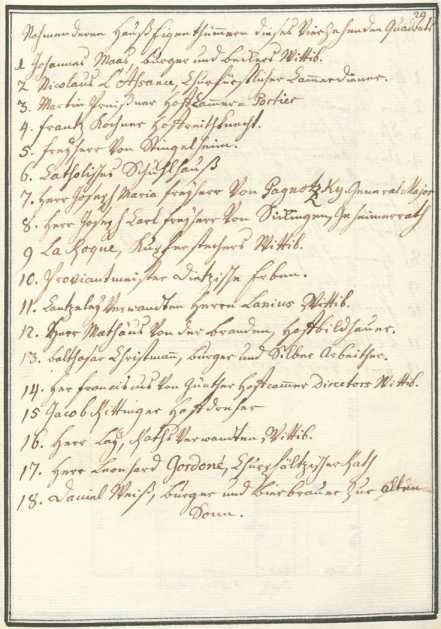 29
Nahmen deren Haußeigenthümmern dieses Vierzehenden Quadrats
1 Johannes Maas, bürger und Wittib.
2 Nicolaus L'Assance, Churfürstlicher Cammerdiener.
3. Martin Hoffcamer-Portier
4. Frantz Kochner Hoffreithknecht.
5. Freyherr Von Stingelheim.
6. Catholisches Schuhlhauß
7. Herr Joseph Maria Freyherr Von General Major
8. Herr Joseph Carl Freyherr Von Geheimerrath
9 La Roque, Kupferstechers Wittib.
10. Proviantmeister Erben.
11. Cantzeley Verwandten Herrn Lanius Wittib.
12. Herr Mathäus Von den Branden, Hoffbildhauer.
13. balthasar Christmann, bürger und Silber Arbeither.
14. Her Franciscus Von Günther Hoffcammer Directors Wittib.
15 Jacob Rittinger Hoffdreher
16. Herr Raths Verwandten, Wittib.
17. Herr Leonhard Gordoné, Churpfältzischer Rath
18. Daniel Weiß, bürger und bierbrauer Zur alten
Sonn.